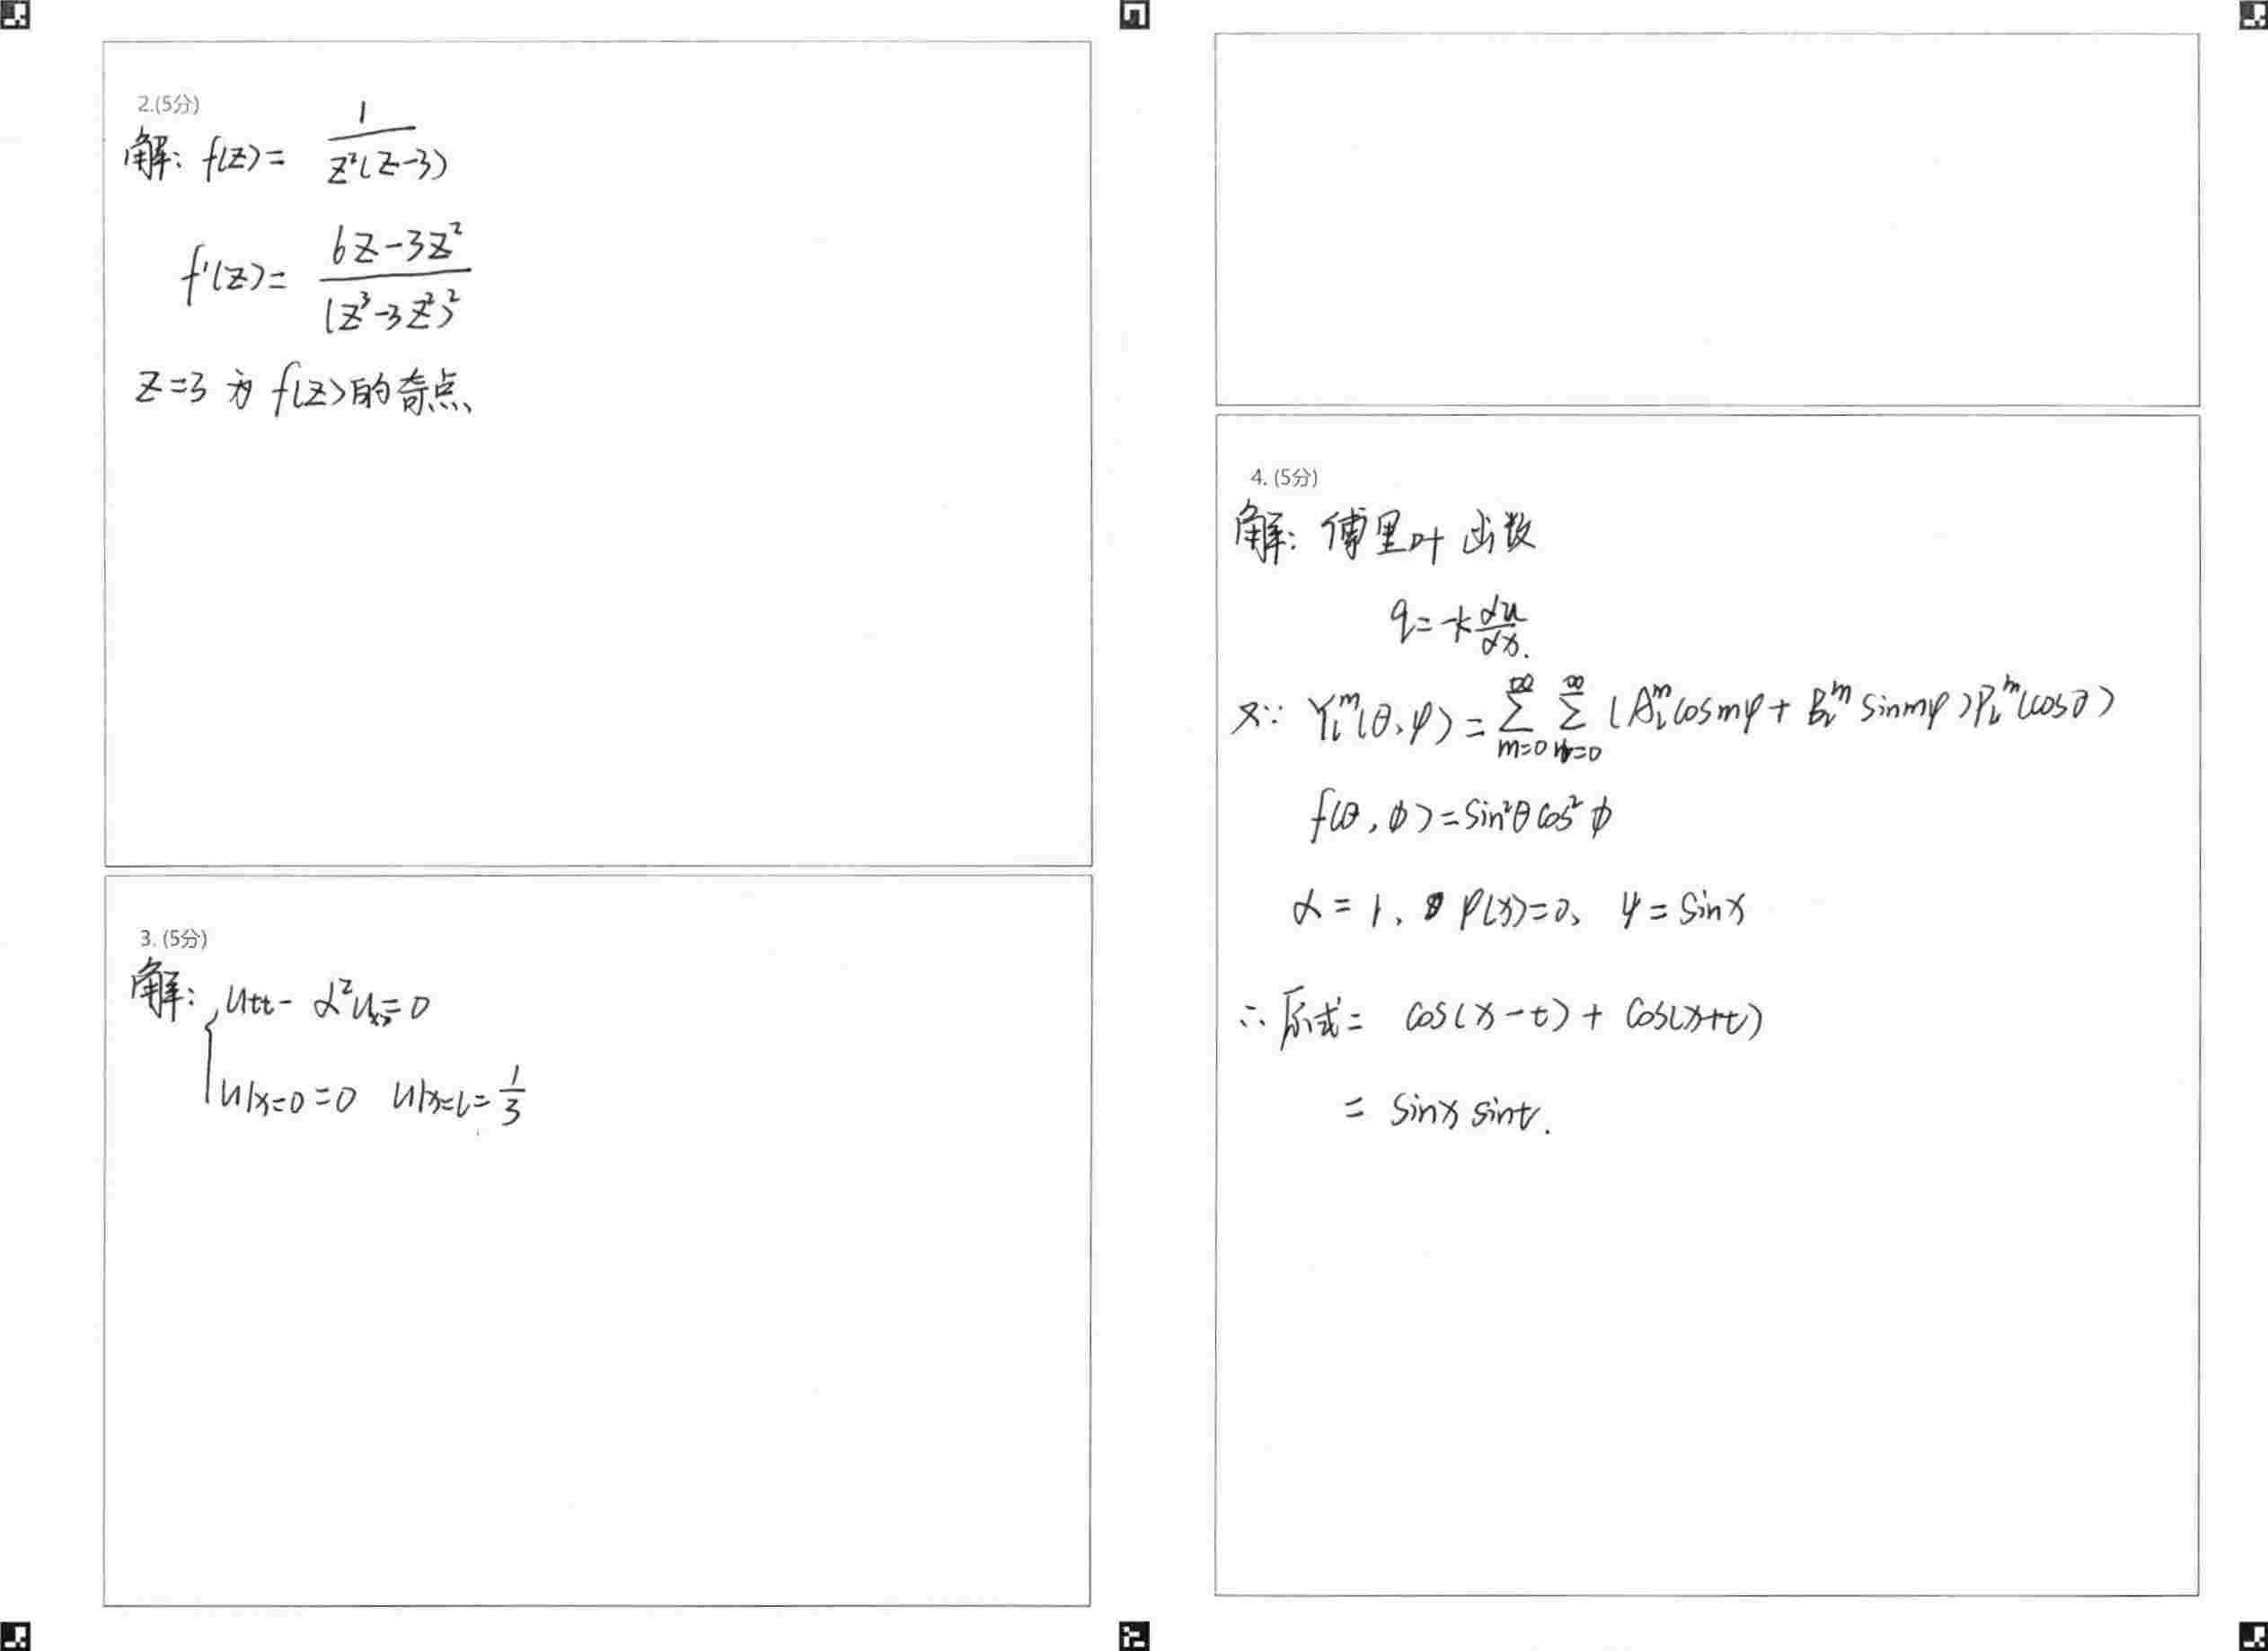 2.(5分)
解: f(z) = 1/(z²(z-3))
f'(z) = (6z-3z²)/(z³-3z²)²
z=3 为 f(z) 的奇点、
3. (5分)
解: { utt - α²uxx = 0
u|x=0 = 0 u|x=l = 1/3
4. (5分)
解: 傅里叶函数
q = -k du/dx.
又∵ Yₗᵐ(θ、φ) = ∑_{m=0}^{∞} ∑_{l=0}^{∞} (Aₗᵐ cos mφ + Bₗᵐ sin mφ) Pₗᵐ (cosθ)
f(θ, ϕ) = sin²θ cos²ϕ
α = 1, φ(x) = 0, ψ = sinx
∴ 原式 = cos(x-t) + cos(x+t)
= sinx sint.